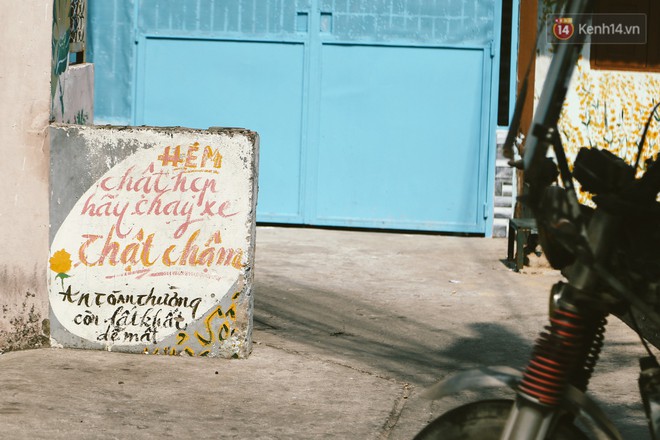 14 Kenh14.vn
HẺM
chật hẹp
hãy chạy xe
Thật chậm
An toàn thường
còn lật khất
dễ mất